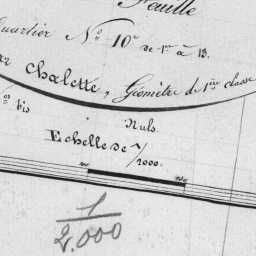 Feuille
Quartier Nº 10e de 1re à 13.
Chalette, Géomètre de 1ère classe
Nos bis
Nuls.
Echelle de 1/2000.
1/2.000